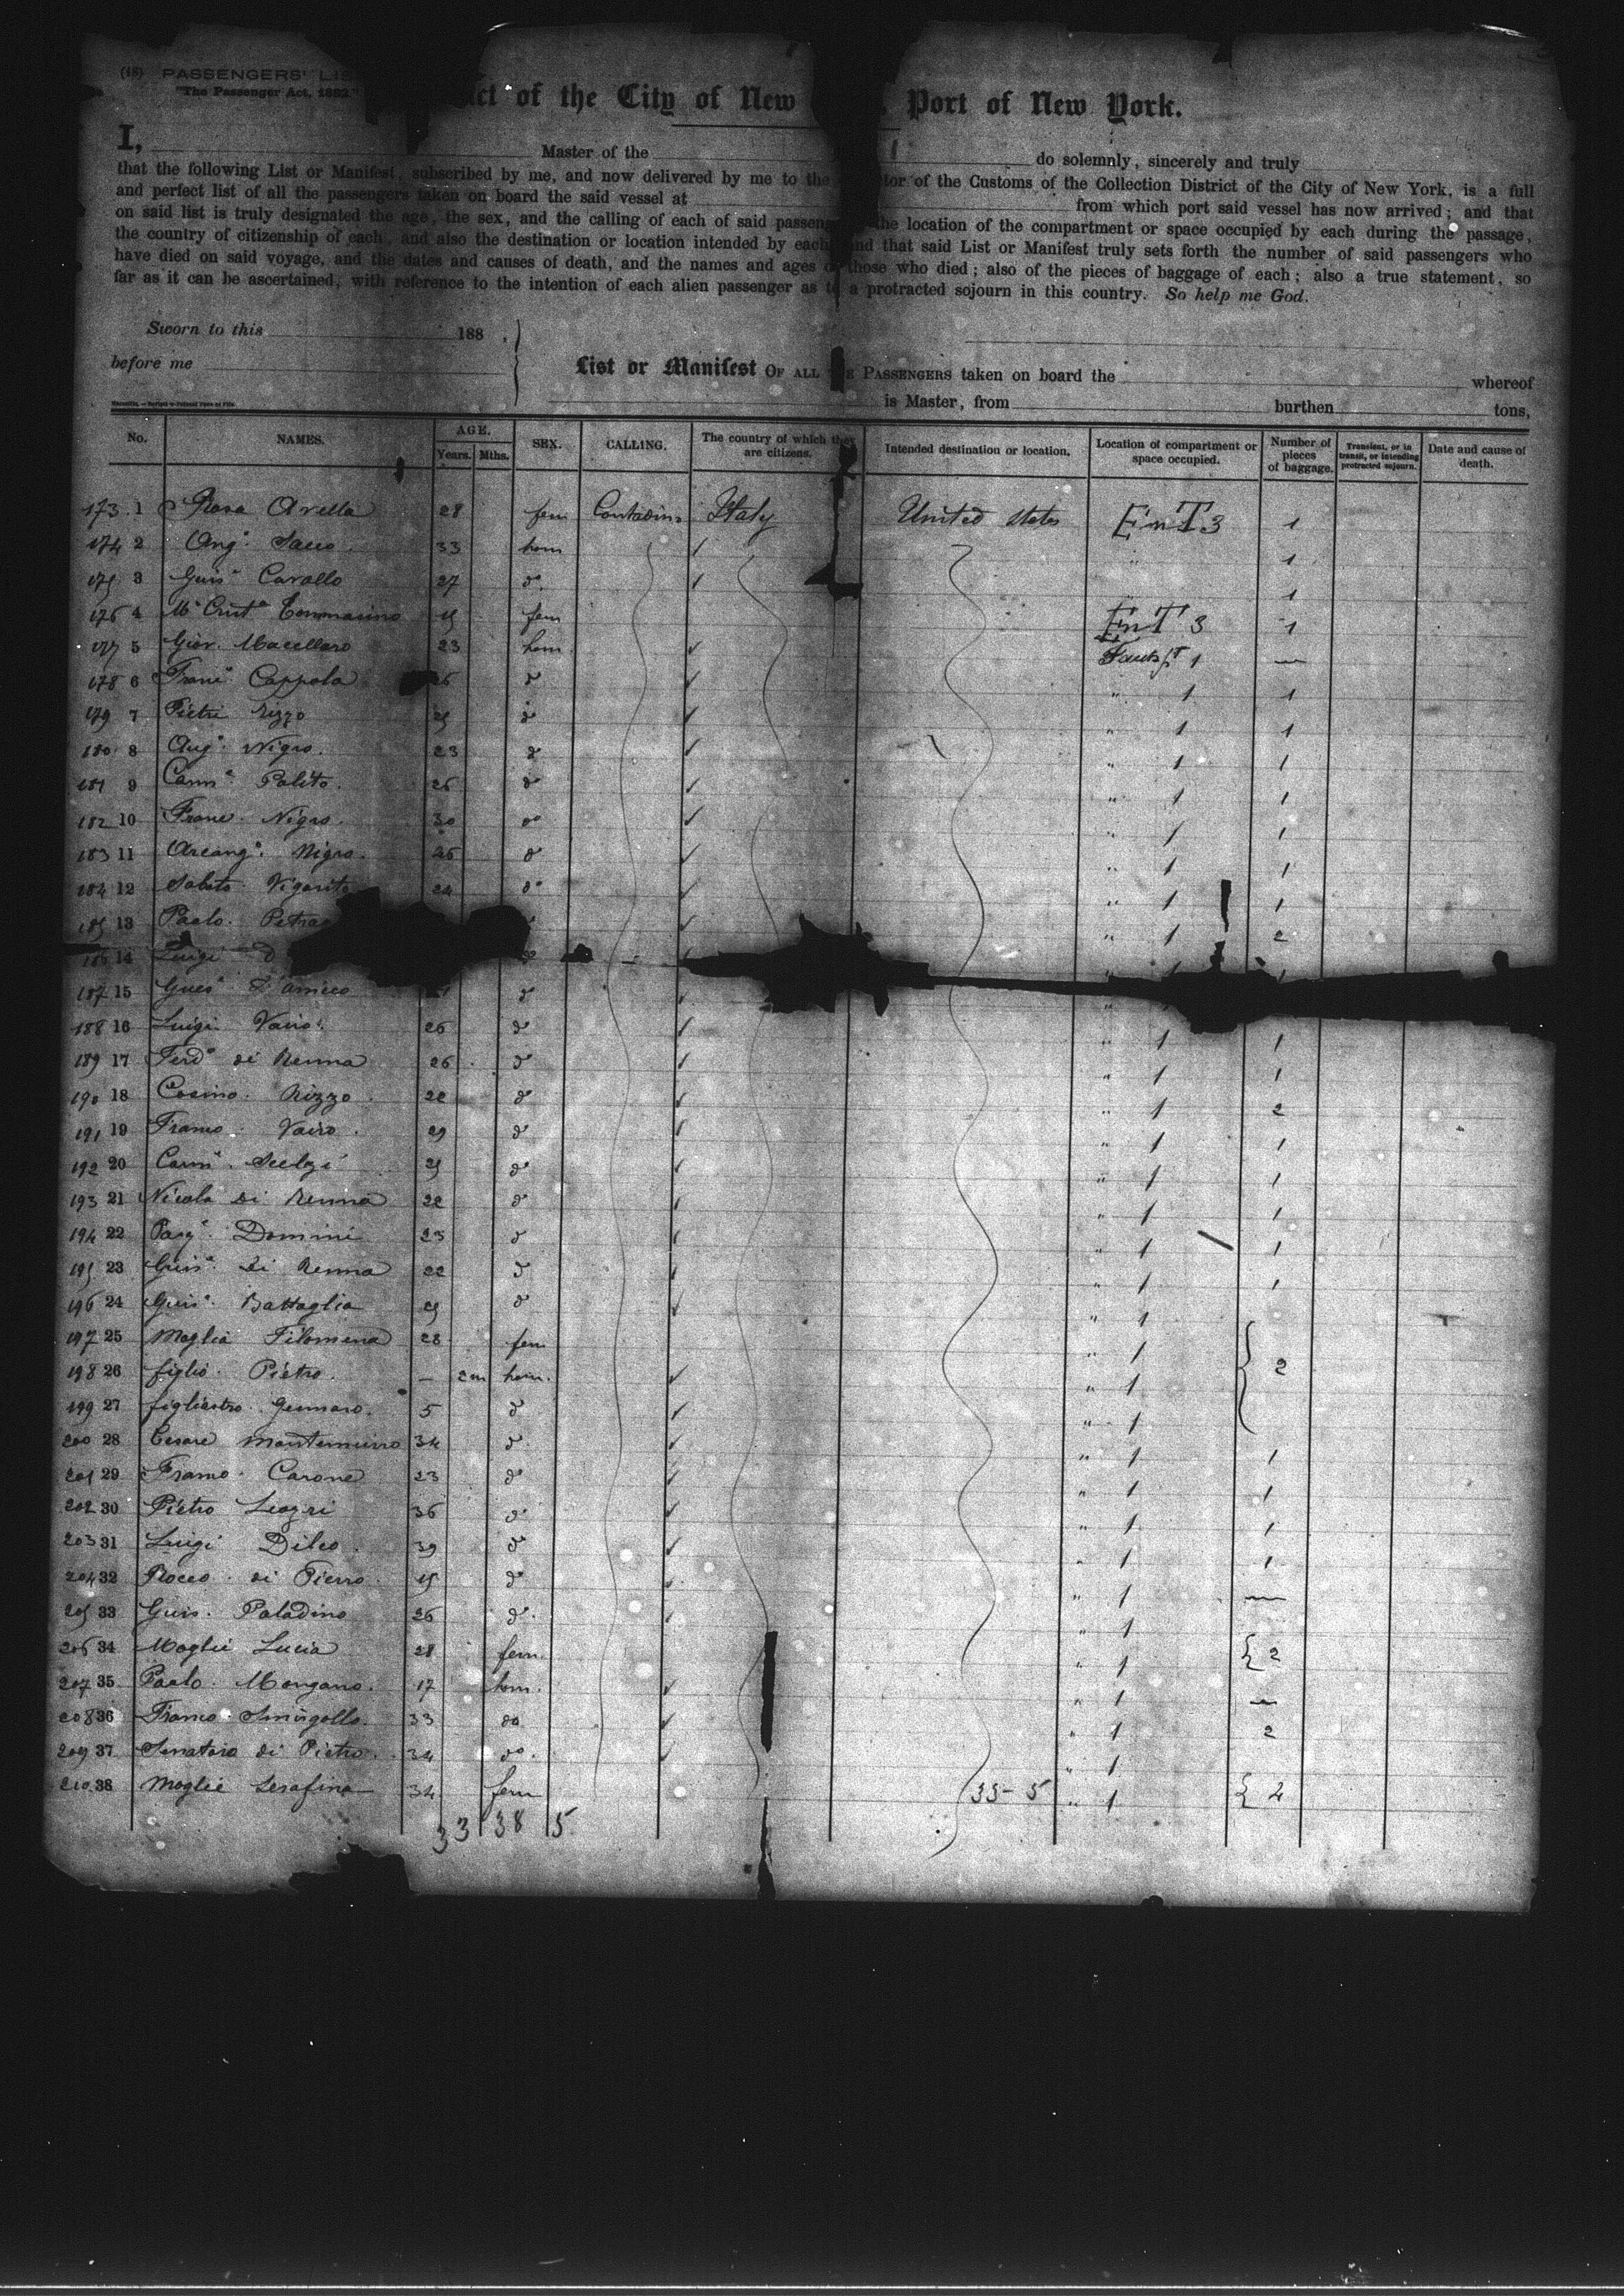 (18) PASSENGERS' LIS
"The Passenger Act, 1882"
ct of the City of New Port of New York.
I, Master of the do solemnly, sincerely and truly
that the following List or Manifest, subscribed by me, and now delivered by me to the tor of the Customs of the Collection District of the City of New York, is a full
and perfect list of all the passengers taken on board the said vessel at from which port said vessel has now arrived; and that
on said list is truly designated the age, the sex, and the calling of each of said passeng the location of the compartment or space occupied by each during the passage,
the country of citizenship of each, and also the destination or location intended by each nd that said List or Manifest truly sets forth the number of said passengers who
have died on said voyage, and the dates and causes of death, and the names and ages o those who died; also of the pieces of baggage of each; also a true statement, so
far as it can be ascertained, with reference to the intention of each alien passenger as to a protracted sojourn in this country. So help me God.
Sworn to this 188 .
before me
List or Manifest OF ALL THE PASSENGERS taken on board the whereof
is Master, from burthen tons,
No. NAMES. AGE. Years. Mths. SEX. CALLING. The country of which they are citizens. Intended destination or location. Location of compartment or space occupied. Number of pieces of baggage. Transient, or in transit, or intending protracted sojourn. Date and cause of death.
173 1 Rosa Avella 28 fem Contadin Italy United States EnT 3 1
174 2 Ango Sacco 33 hom " 1
175 3 Guise Cavallo 27 do 1
176 4 Ma Crista Tommasino 19 fem EnT 3 1
177 5 Giov. Macellaro 23 hom 1 —
178 6 Franco Cappola 26 do " 1 1
179 7 Pietri Rizzo 25 do " 1 1
180 8 Ango Nigro 23 do " 1 1
181 9 Carme Polito 26 do " 1 1
182 10 Franc. Nigro 30 do " 1 1
183 11 Arcango Nigro 26 do " 1 1
184 12 Sabato Vigorito 24 do " 1 1
185 13 Paolo Petra " 1 2
186 14 Luigi D do
187 15 Guese D'amico do
188 16 Luigi Vairo 26 do " 1 1
189 17 Ferdo di Renna 26 do " 1 1
190 18 Cosimo Rizzo 22 do " 1 2
191 19 Franco Vairo 29 do " 1 1
192 20 Carme 25 do " 1 1
193 21 Nicola Di Renna 22 do " 1 1
194 22 Pasqe Domini 23 do " 1 1
195 23 Guise Di Renna 22 do " 1 1
196 24 Guise Battaglia 29 do " 1
197 25 Moglia Filomena 28 fem " 1
198 26 figlio Pietro — 2m hom. " 1 2
199 27 figliastro Gennaro 5 do " 1
200 28 Cesare Montemurro 34 do " 1 1
201 29 Franco Carone 23 do " 1 1
202 30 Pietro Leozri 36 do " 1 1
203 31 Luigi Dileo 39 do " 1 1
204 32 Rocco di Pierro 19 do " 1 —
205 33 Guis. Paladino 26 do " 1
206 34 Moglie Lucia 28 fem. " 1 2
207 35 Paolo Mongano 17 hom. " 1 —
208 36 Franco Smirgollo 33 do " 1 2
209 37 Senatoro di Pietro 34 do " 1
210 38 Moglie Serafina 34 fem 33-5 " 1 2
33 38 5